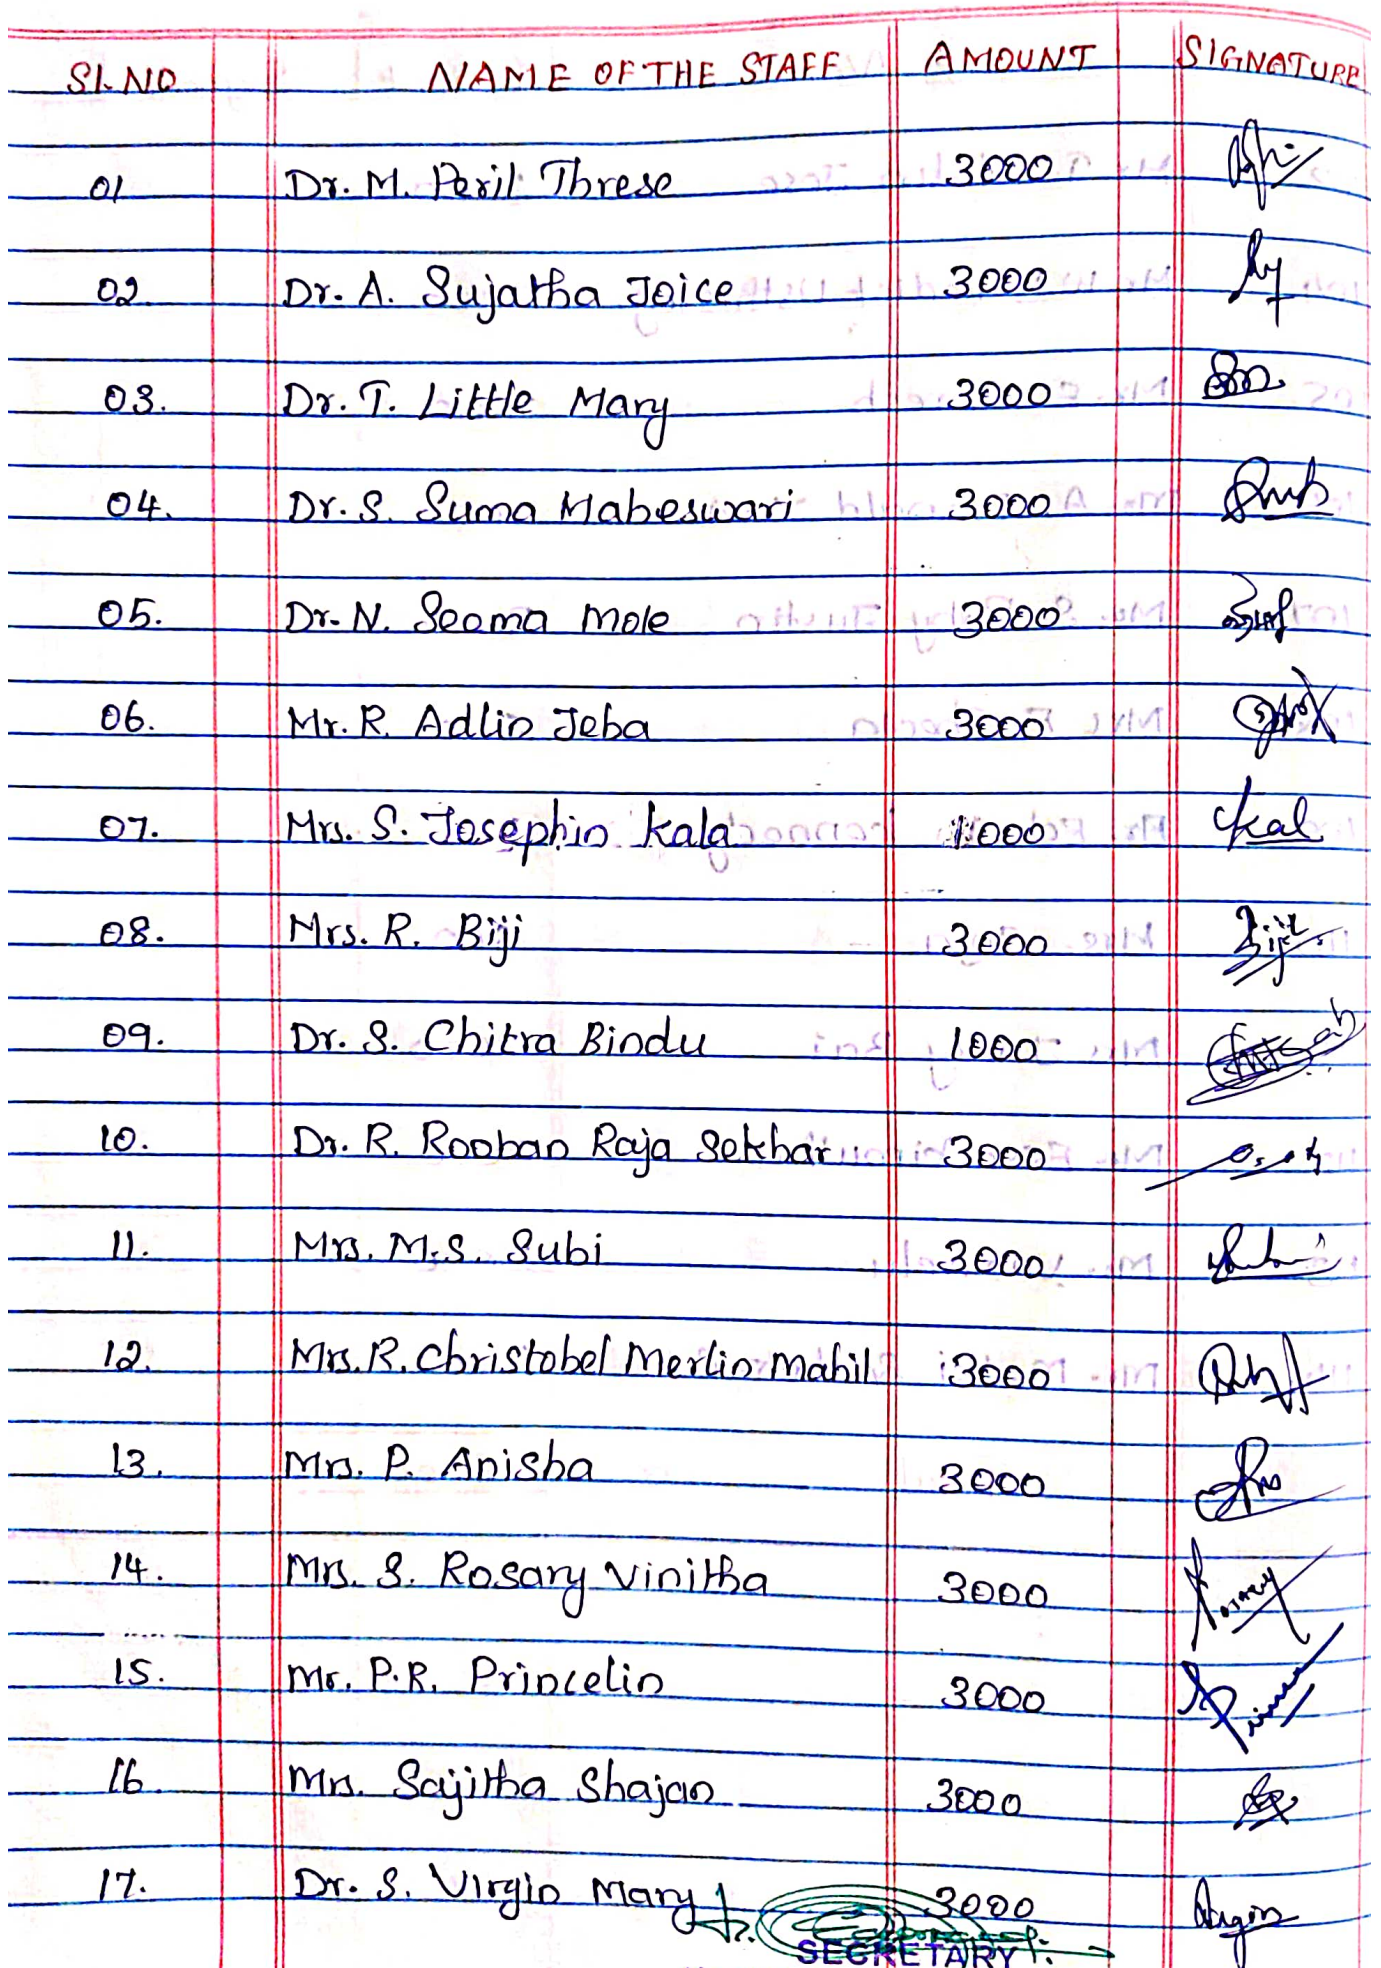 Sl. NO NAME OF THE STAFF AMOUNT SIGNATURE
01 Dr. M. Peril Threse 3000
02. Dr. A. Sujatha Joice 3000
03. Dr. T. Little Mary 3000
04. Dr. S. Suma Maheswari 3000
05. Dr. N. Seema Mole 3000
06. Mr. R. Adlin Jeba 3000
07. Mrs. S. Josephin Kala 1000 Kal
08. Mrs. R. Biji 3000 Biji
09. Dr. S. Chitra Bindu 1000
10. Dr. R. Rooban Raja Sekhar 3000
11. Mrs. M.S. Subi 3000
12. Mrs. R. Christobel Merlin Mahil 3000
13. Mrs. P. Anisha 3000
14. Mrs. S. Rosary Vinitha 3000 Rosary
15. Mr. P.R. Princelin 3000
16. Mrs. Sajitha Shajan 3000
17. Dr. S. Virgin Mary 3000
SECRETARY